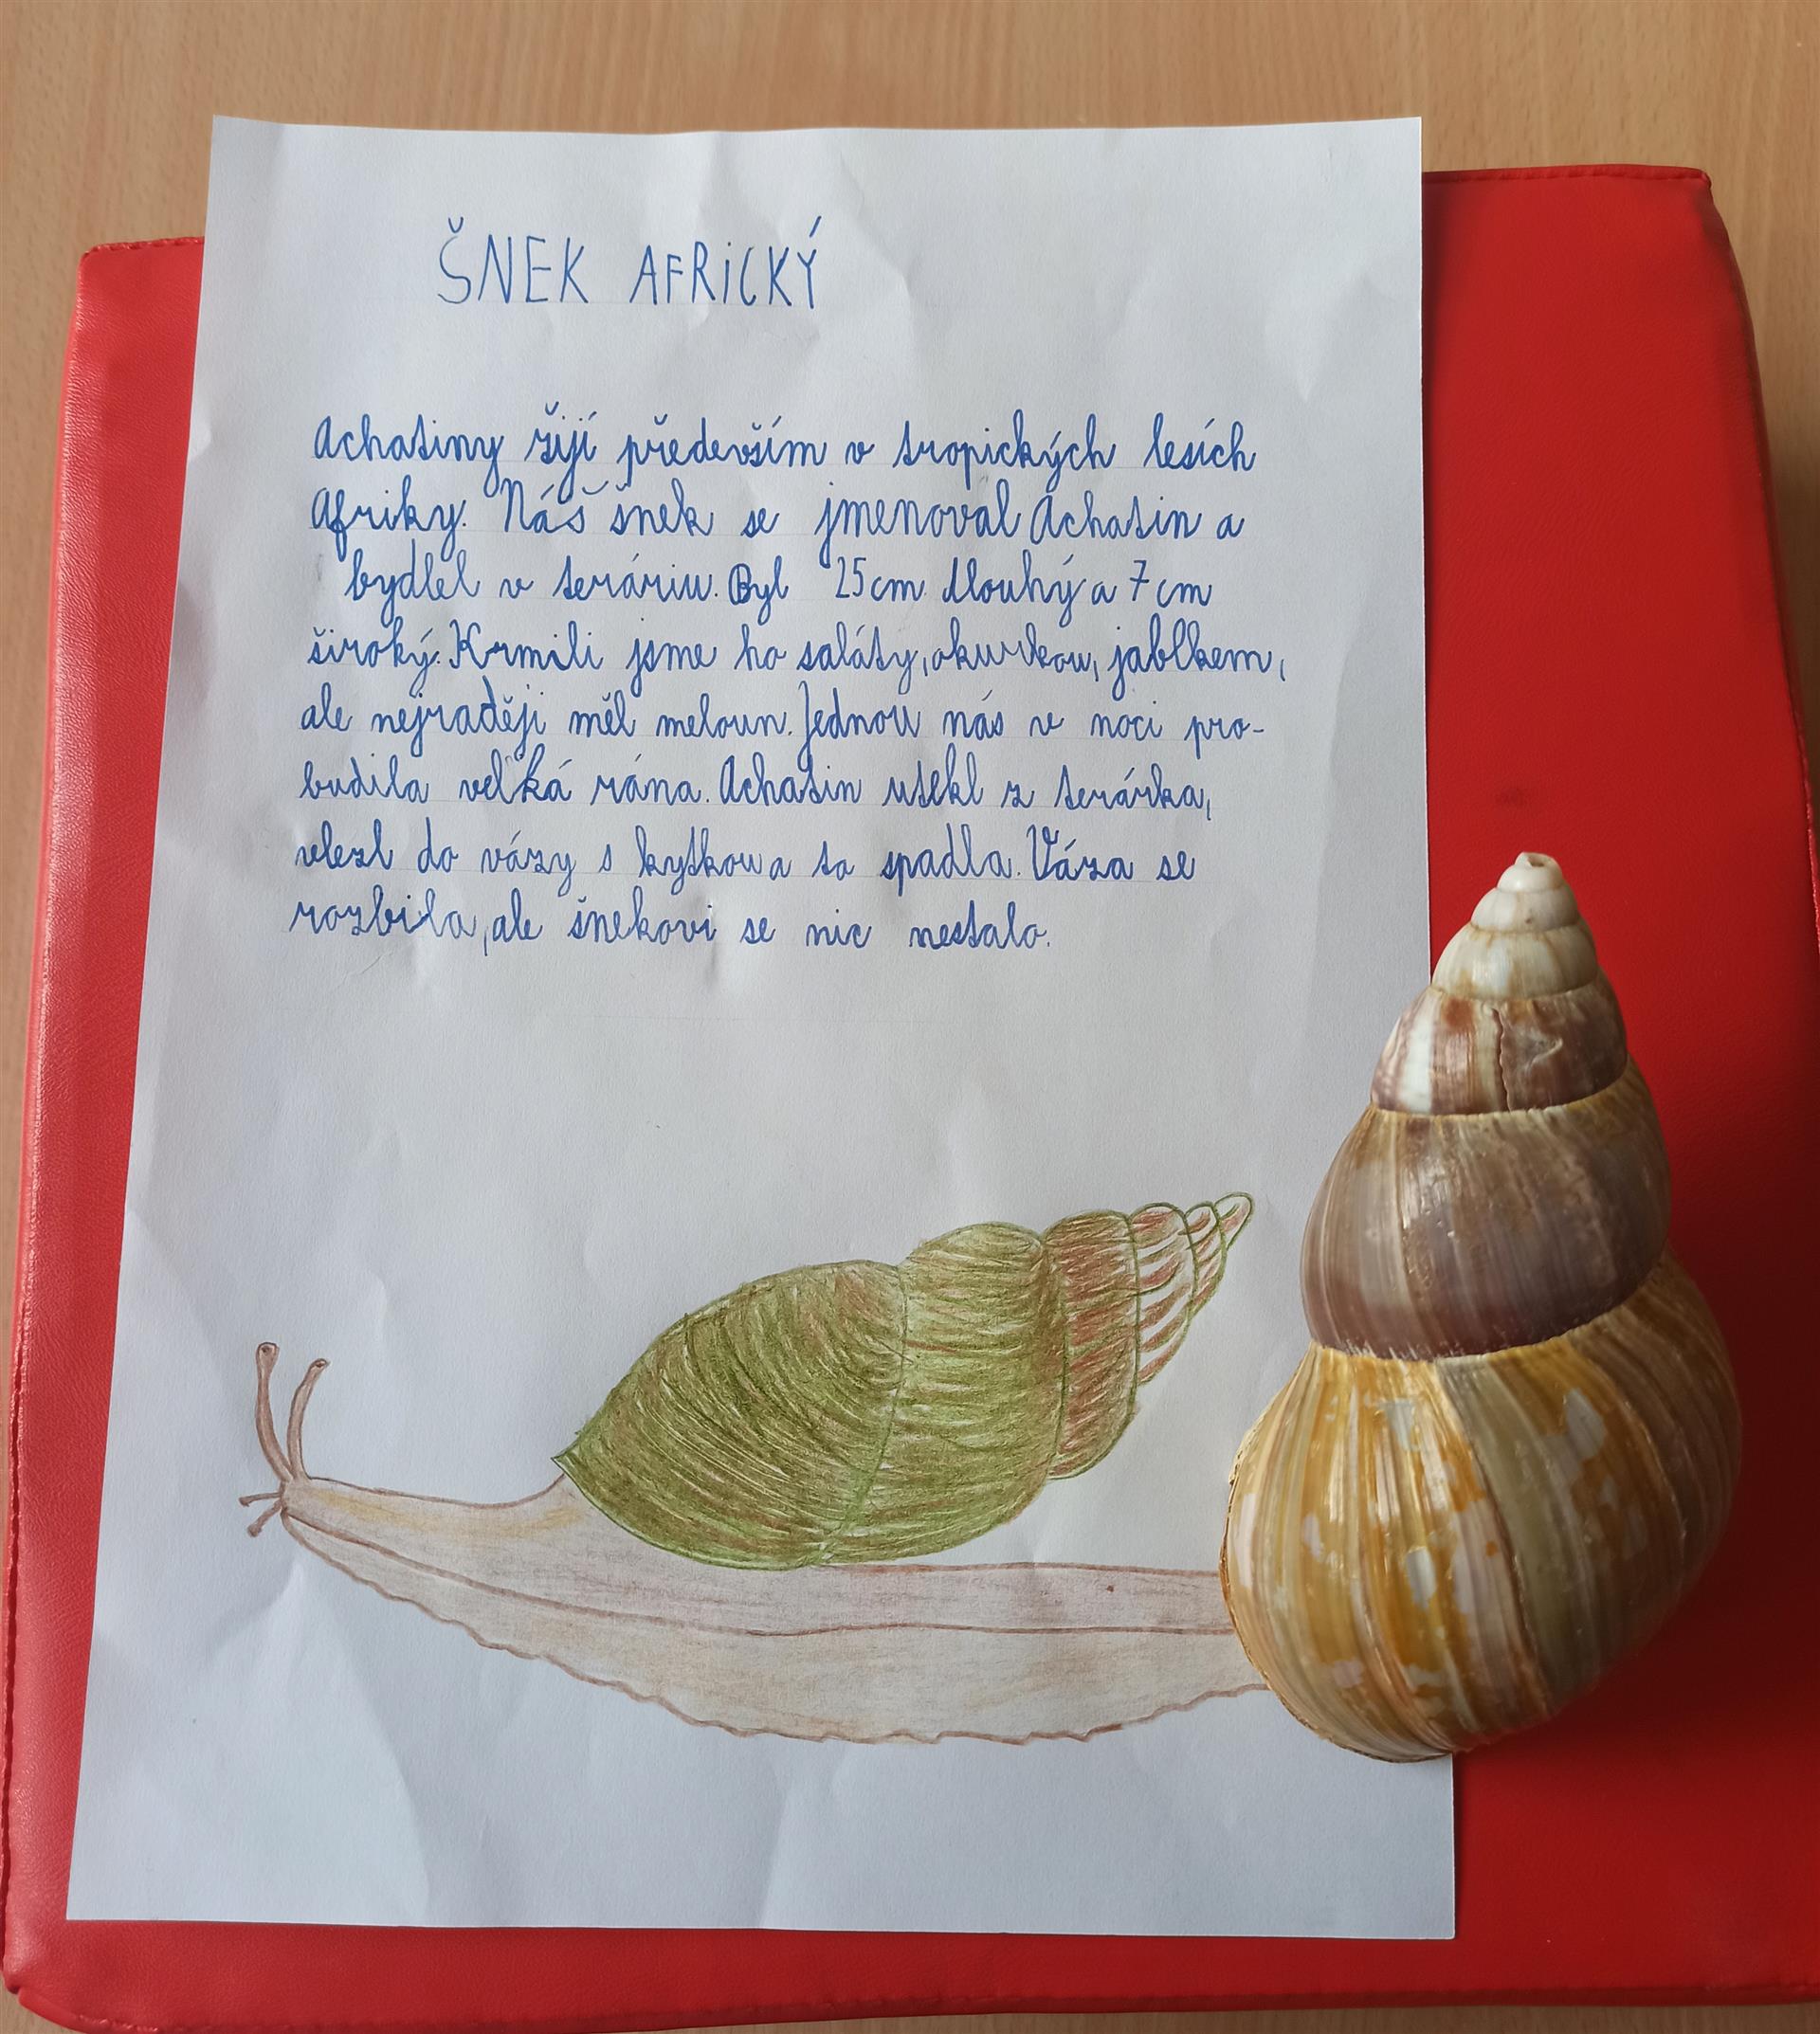 ŠNEK AFRICKÝ
Achatiny žijí především v tropických lesích
Afriky. Náš šnek se jmenoval Achatin a
bydlel v teráriu. Byl 25 cm dlouhý a 7 cm
široký. Krmili jsme ho saláty, okurkou, jablkem,
ale nejraději měl meloun. Jednou nás v noci pro-
budila velká rána. Achatin utekl z terárka,
vlezl do vázy s kytkou a ta spadla. Váza se
rozbila, ale šnekovi se nic nestalo.